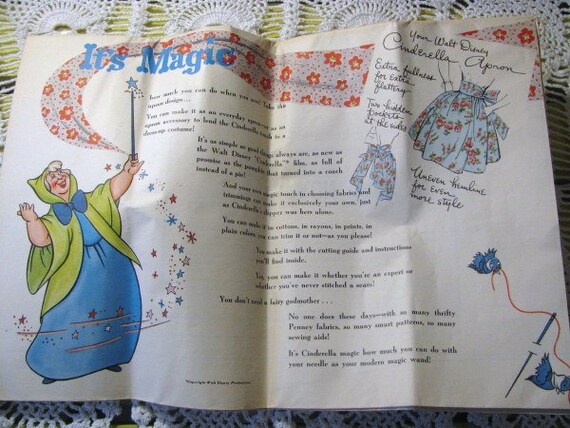 It's Magic
much you can do when you use
upon design...
You can make it as an everyday apron or as an
apron accessory to lend the Cinderella touch to a
dress-up costume!
It's as simple as good things always are, as new as
the Walt Disney "Cinderella"* film, as full of
promise as the pumpkin that turned into a coach
instead of a pie!
And your own magic touch in choosing fabrics and
trimmings can make it exclusively your own, just
as Cinderella's slipper was hers alone.
You can make it in cottons, in rayons, in prints, in
plain colors, you can trim it or not—as you please!
You make it with the cutting guide and instructions
you'll find inside.
Yes, you can make it whether you're an expert or
whether you've never stitched a seam!
You don't need a fairy godmother...
No one does these days—with so many thrifty
Penney fabrics, so many smart patterns, so many
sewing aids!
It's Cinderella magic how much you can do with
your needle as your modern magic wand!
*Copyright Walt Disney Productions
Your Walt Disney
Cinderella Apron
Extra fullness
for extra
flattery
Two hidden
pockets
at the sides
Uneven hemline
for even
more style